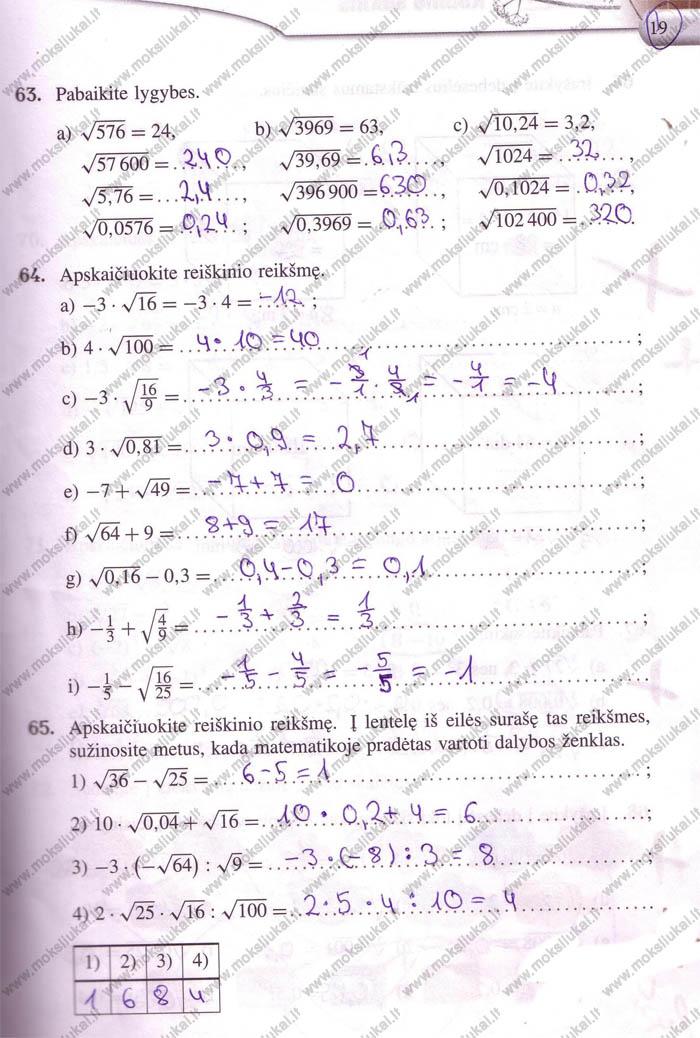 19
63. Pabaikite lygybes.
a) √576 = 24, b) √3969 = 63, c) √10,24 = 3,2,
√57 600 = 240, √39,69 = 6,3, √1024 = 32,
√5,76 = 2,4, √396 900 = 630, √0,1024 = 0,32,
√0,0576 = 0,24; √0,3969 = 0,63; √102 400 = 320.
64. Apskaičiuokite reiškinio reikšmę.
a) −3 · √16 = −3 · 4 = −12;
b) 4 · √100 = 4 · 10 = 40;
c) −3 · √16/9 = −3 · 4/3 = −3/1 · 4/3 = −4/1 = −4;
d) 3 · √0,81 = 3 · 0,9 = 2,7;
e) −7 + √49 = −7 + 7 = 0;
f) √64 + 9 = 8 + 9 = 17;
g) √0,16 − 0,3 = 0,4 − 0,3 = 0,1;
h) −1/3 + √4/9 = −1/3 + 2/3 = 1/3;
i) −1/5 − √16/25 = −1/5 − 4/5 = −5/5 = −1.
65. Apskaičiuokite reiškinio reikšmę. Į lentelę iš eilės surašę tas reikšmes,
sužinosite metus, kada matematikoje pradėtas vartoti dalybos ženklas.
1) √36 − √25 = 6 − 5 = 1;
2) 10 · √0,04 + √16 = 10 · 0,2 + 4 = 6;
3) −3 · (−√64) : √9 = −3 · (−8) : 3 = 8;
4) 2 · √25 · √16 : √100 = 2 · 5 · 4 : 10 = 4.
1) 2) 3) 4)
1 6 8 4
www.moksliukai.lt